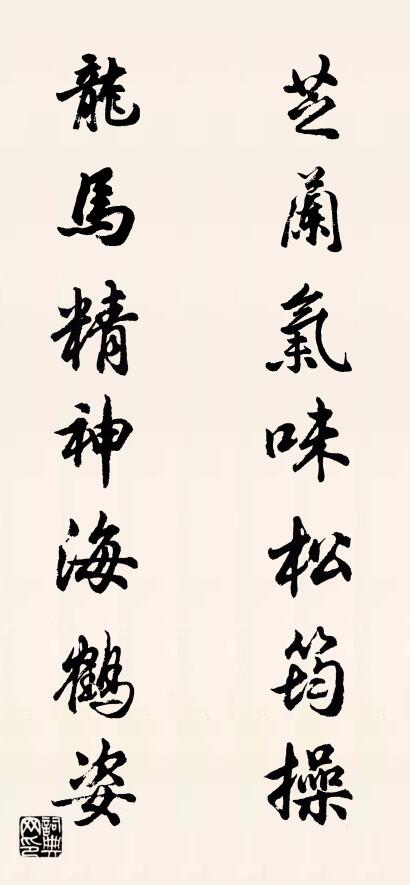 芝蘭氣味松筠操
龍馬精神海鶴姿
詞典網印